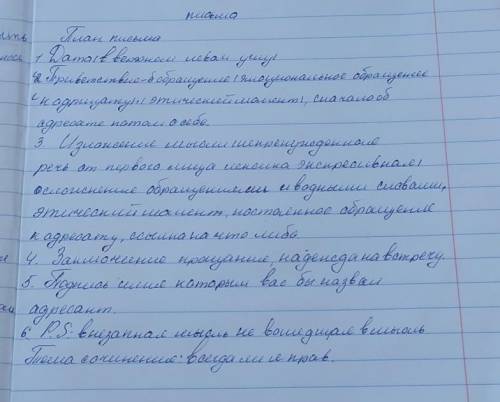 письмо
План письма
1. Дата: в верхнем левом углу
2. Приветствие-обращение; эмоциональное обращение
к адрицату; этический момент, сначало об
адресате потом о себе.
3. Изложение мысли: непренужденное
речь от первого лица лексика экспресивная;
осложнение обращениеми и водными словами,
этический момент, постоенное обращение
к адресату, ссылка на что либо.
4. Заключение прощание, надежда на встречу.
5. Подпись с име которым вас бы назвал
адресант.
6. P.S. внезапная мысль не вошедшая в мысль
Тема сочинение: всегда ли я прав.